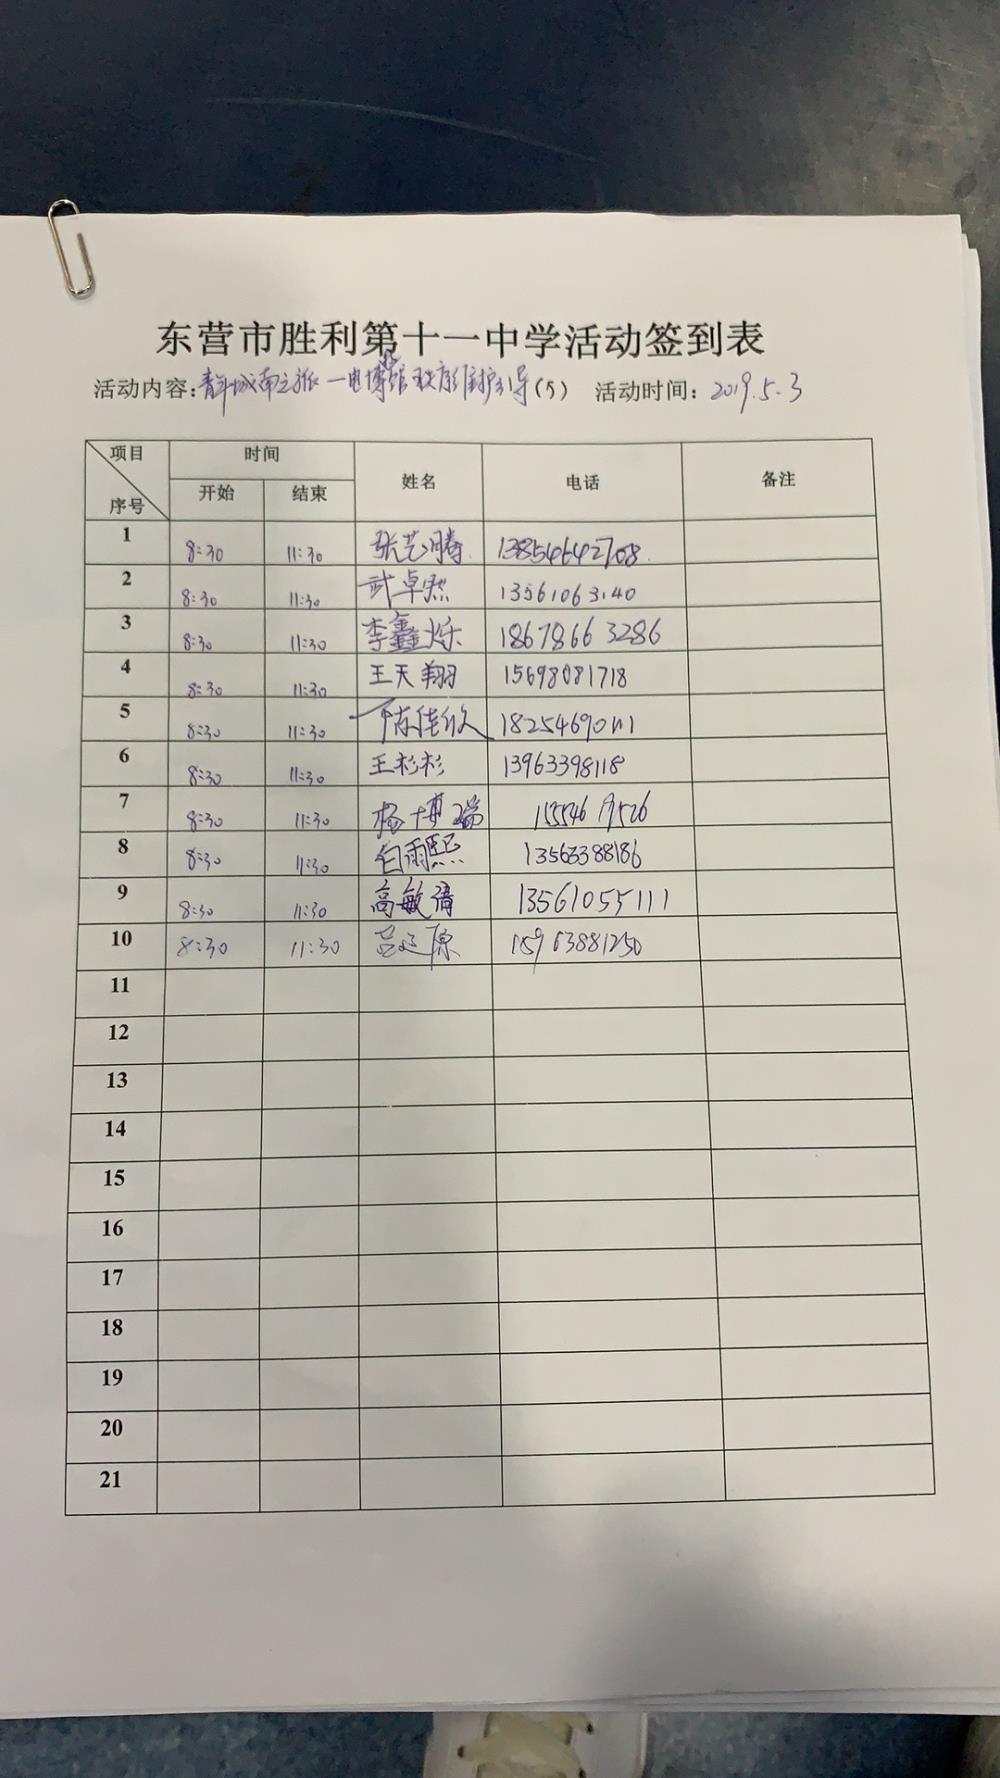 东营市胜利第十一中学活动签到表
活动内容: 活动时间: 2019.5.3
项目 时间 姓名 电话 备注
序号 开始 结束
1 8:30 11:30 张艺腾 13854642708
2 8:30 11:30 武卓然 13561063140
3 8:30 11:30 李鑫烁 18678663286
4 8:30 11:30 王天翔 15698081718
5 8:30 11:30 陈佳欣 18254690111
6 8:30 11:30 王杉杉 13963398118
7 8:30 11:30 杨博瑞 15554619526
8 8:30 11:30 白雨熙 13563388186
9 8:30 11:30 高敏清 13561055111
10 8:30 11:30 15963881250
11
12
13
14
15
16
17
18
19
20
21